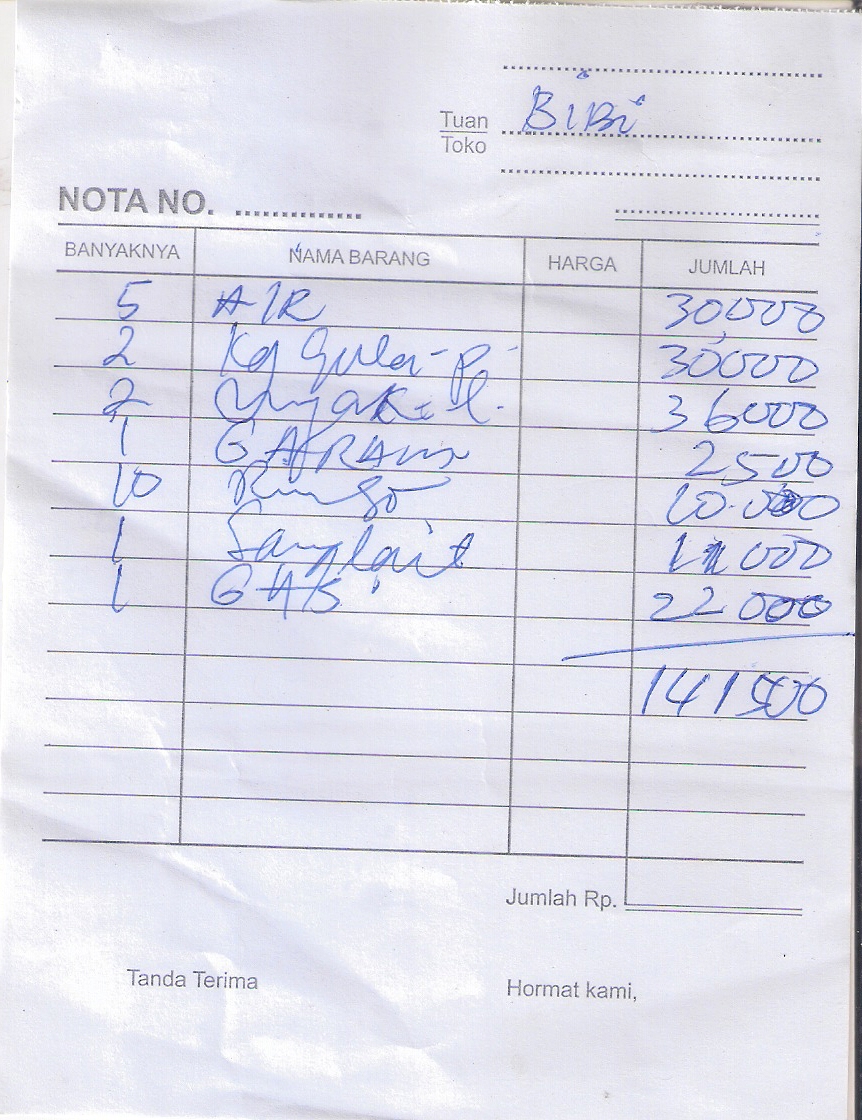 Tuan BiBi
Toko
NOTA NO. ...............
BANYAKNYA NAMA BARANG HARGA JUMLAH
5 AIR 30,000
2 Kg Gula-P 30000
2 36000
1 GARAM 2500
10 10.000
1 Sunlait 11000
1 GAS 22000
141500
Jumlah Rp.
Tanda Terima Hormat kami,